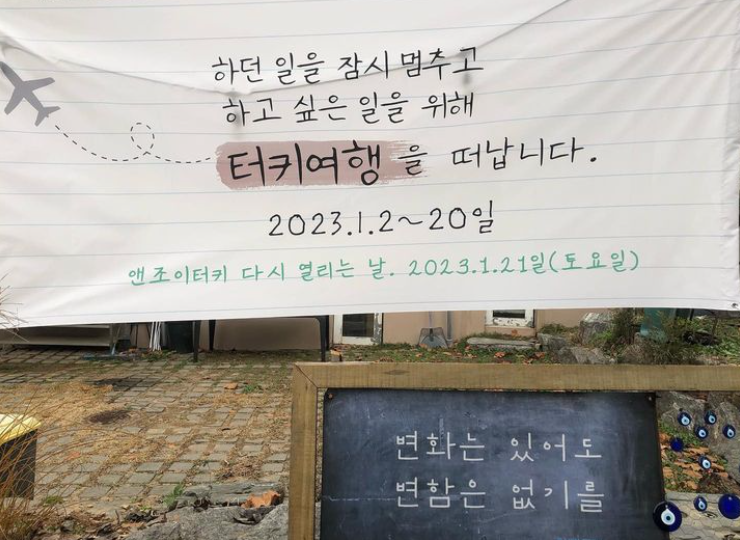 하던 일을 잠시 멈추고
하고 싶은 일을 위해
터키여행을 떠납니다.
2023.1.2~20일
앤조이터키 다시 열리는 날. 2023.1.21일(토요일)
변화는 있어도
변함은 없기를